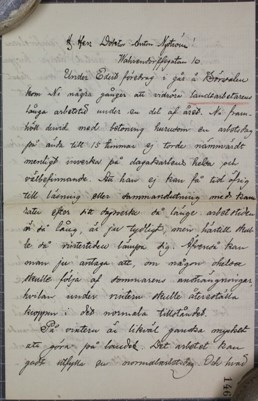 Hr Herr Doktor Anton Nyström!
Wahrendorffsgatan 10
Under Edert föredrag i går å Hörsalen
kom Ni några gånger att vidröra landtarbetarens
långa arbetstid under en del af året. Ni fram-
höll dervid med betoning hurusom en arbetsdag
på ända till 15 timmar ej torde nämnvärdt
menligt inverka på dagakarlens helsa och
välbefinnande. Att han ej kan få tid öfrig
till läsning eller sammanslutning med kam-
rater efter sitt dagsverke så länge arbetstiden
är så lång, är ju tydligt, men härtill skul-
le då vintertiden lämpa sig. Äfvenså kan
man ju antaga att, om någon ohelsa
skulle följa af sommarens ansträngningar
hvilan under vintern skulle återställa
kroppen i det normala tillståndet.
På vintern är likväl ganska mycket
att göra på landet. Det arbetet kan
godt utfylla en normalarbetsdag. Och hvad
146